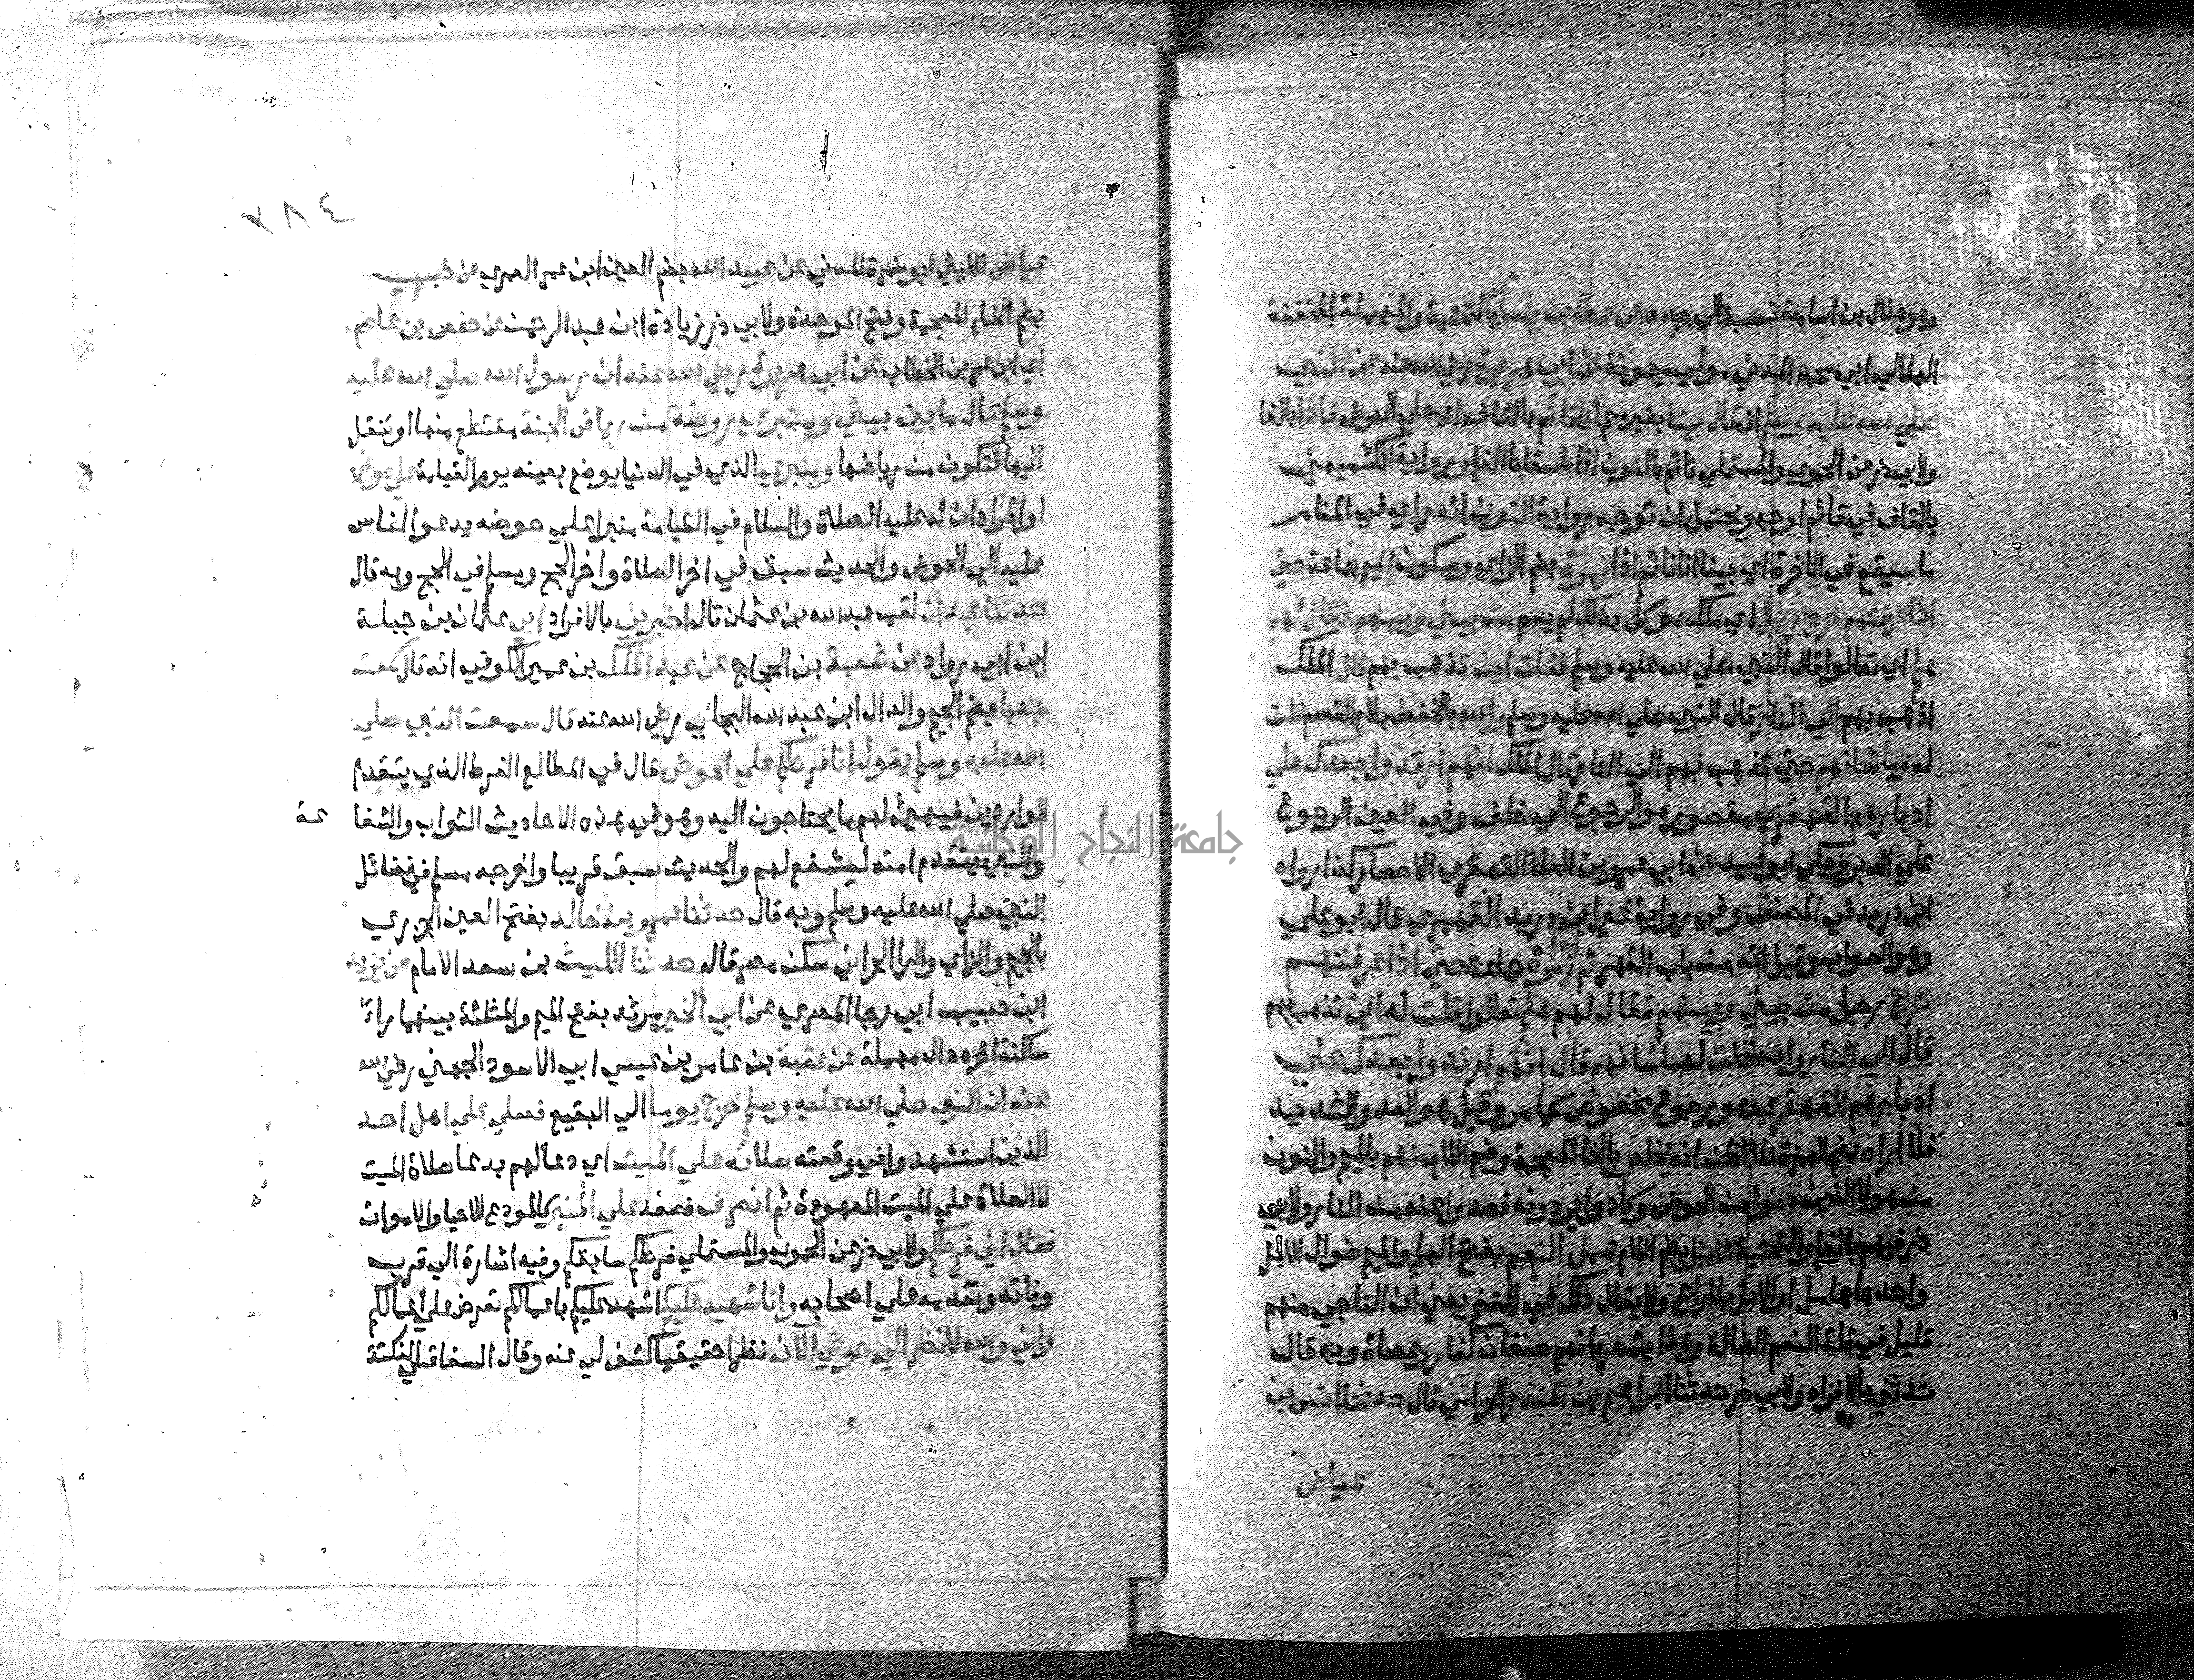 وهو هلال بن اسامة نسبة الي جده عن عطا بن يسار بالتحتية والمهملة المخففة
الهلالي ابي محمد المدني مولي ميمونة عن ابي هريرة رضي الله عنه عن النبي
صلي الله عليه وسلم انه قال بينا بغير ميم انا قائم بالقاف اي علي الحوض فاذا بالفا
ولابي ذر عن الحموي والمستملي نائم بالنون اذا باسقاط الفا ورواية الكشميهني
بالقاف في قائم اوجه ويحتمل ان توجه رواية النون انه راي في المنام
ما سيقع في الاخرة اي بينا انا نائم اذا زمرة بضم الزاي وسكون الميم جماعة حتي
اذا عرفتهم خرج رجل اي ملك موكل بذلك لم يسم من بيني وبينهم فقال لهم
هلم اي تعالوا قال النبي صلي الله عليه وسلم فقلت اين تذهب بهم قال الملك
اذهب بهم الي النار قال النبي صلي الله عليه وسلم والله بالخفض بلام القسم قلت
له وما شانهم حتي تذهب بهم الي النار قال الملك انهم ارتدوا بعدك علي
ادبارهم القهقري مقصور هو الرجوع الي خلف وفي العين الرجوع
علي الدبر وحكي ابو عبيد عن ابي عمرو بن العلا القهقري الاحصار كذا رواه
ابن دريد في المصنف وفي رواية غير ابن دريد القهقري قال ابو علي
وهو الصواب وقيل انه من باب القهر ثم اذا زمرة جماعة حتي اذا عرفتهم
خرج رجل من بيني وبينهم فقال لهم هلم تعالوا قلت له اين تذهب بهم
قال الي النار والله قلت له ما شانهم قال انهم ارتدوا بعدك علي
ادبارهم القهقري هو رجوع مخصوص كما مر وقيل هو العدو الشديد
فلا اراه بضم الهمزة فلا اظن انه يخلص بالخا المعجمة وضم اللام منهم بالميم والنون
من هولا الذين دنوا من الحوض وكادوا يردونه فصدوا عنه من النار ولابي
ذر فيهم بالفا والتحتية الا مثل بضم اللام همل النعم بفتح الها والميم ضوال الابل
واحدها هامل او الابل بلا راع ولا يقال ذلك في الغنم يعني ان الناجي منهم
قليل في قلة النعم الضالة وهذا يشعر بانهم صنفان كفار وعصاة وبه قال
حدثني بالافراد ولابي ذر حدثنا ابراهيم بن المنذر الحزامي قال حدثنا انس بن
عياض
٣٨٤
عياض الليثي ابو ضمرة المدني عن عبيد الله بضم العين ابن عمر العمري عن خبيب
بضم الخاء المعجمة وفتح الموحدة ولابي ذر زيادة ابن عبد الرحمن عن حفص بن عاصم
اي ابن عمر بن الخطاب عن ابي هريرة رضي الله عنه ان رسول الله صلي الله عليه
وسلم قال ما بين بيتي ومنبري روضة من رياض الجنة مقتطع منها او تنقل
اليها فتكون من رياضها ومنبري الذي في الدنيا يوضع بعينه يوم القيامة علي حوضي
او المراد ان له عليه الصلاة والسلام في القيامة منبرا علي حوضه يدعو الناس
عليه الي الحوض والحديث سبق في اخر الصلاة واخر الحج ومسلم في الحج وبه قال
حدثنا عبدان لقب عبد الله بن عثمان قال اخبرني بالافراد ابي عثمان بن جبلة
ابن ابي رواد عن شعبة بن الحجاج عن عبد الملك بن عمير الكوفي انه قال سمعت
جندبا بضم الجيم والدال ابن عبد الله البجلي رضي الله عنه قال سمعت النبي صلي
الله عليه وسلم يقول انا فرطكم علي الحوض قال في المطالع الفرط الذي يتقدم
الواردين فيهيئ لهم ما يحتاجون اليه وهو في هذه الاحاديث الثواب والشفا عة
والنبي يتقدم امته ليشفع لهم والحديث سبق قريبا واخرجه مسلم في فضائل
النبي صلي الله عليه وسلم وبه قال حدثنا عمرو بن خالد بفتح العين الجزري
بالجيم والزاي والرا الحراني سكن مصر قال حدثنا الليث بن سعد الامام عن يزيد
ابن حبيب ابي رجا المصري عن ابي الخير مرثد بفتح الميم والمثلثة بينهما راء
ساكنة اخره دال مهملة عن عقبة بن عامر بن عبسي ابي الاسود الجهني رضي الله
عنه ان النبي صلي الله عليه وسلم خرج يوما الي البقيع فصلي علي اهل احد
الذين استشهدوا في وقعته صلاته علي الميت اي دعا لهم بدعا صلاة الميت
لا الصلاة علي الميت المعهودة ثم انصرف فصعد علي المنبر كالمودع للاحيا والاموات
فقال اني فرطكم ولابي ذر عن الحموي والمستملي فرطكم سابقكم وفيه اشارة الي قرب
وفاته وتقدمه علي اصحابه وانا شهيد عليكم اشهد عليكم باعمالكم تعرض علي اعمالكم
واني والله لانظر الي حوضي الان نظرا حقيقيا كشف لي عنه وقال السفاقسي النكتة
جامعة النجاح الوطنية